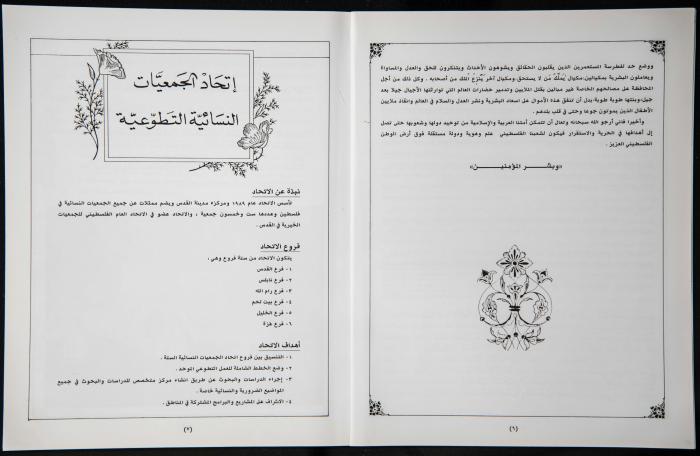 ووضع حد لغطرسة المستعمرين الذين يقلبون الحقائق ويشوهون الأحداث ويتنكرون للحق والعدل والمساواة
ويعاملون البشرية بمكيالين، مكيال يُملّك من لا يستحق ومكيال آخر يَنْزِعُ الملك من أصحابه . وكل ذلك من أجل
المحافظة على مصالحهم الخاصة غير مبالين بقتل الملايين وتدمير حضارات العالم التي توارثتها الأجيال جيلا بعد
جيل، وبنتها طوبة طوبة، بدل أن تنفق هذه الأموال على اسعاد البشرية ونشر العدل والسلام في العالم وانقاذ ملايين
الأطفال الذين يموتون جوعا وحتى في قلب بلدهم .
وأخيرا فاني أرجو الله سبحانه وتعالى أن تتمكن أمتنا العربية والإسلامية من توحيد دولها وشعوبها حتى تصل
إلى أهدافها في الحرية والاستقرار فيكون لشعبنا الفلسطيني علم وهوية ودولة مستقلة فوق أرض الوطن
الفلسطيني العزيز .
«وبشر المؤمنين»
(٦)
إتحاد الجمعيّات
النسائيّة التطوّعيّة
نبذة عن الاتحاد
تأسس الاتحاد عام ١٩٨٩ ومركزه مدينة القدس ويضم ممثلات عن جميع الجمعيات النسائية في
فلسطين وعددها ست وخمسون جمعية ، والاتحاد عضو في الاتحاد العام الفلسطيني للجمعيات
الخيرية في القدس .
فروع الاتحاد
يتكون الاتحاد من ستة فروع وهي :
١- فرع القدس
٢- فرع نابلس
٣- فرع رام الله
٤- فرع بيت لحم
٥- فرع الخليل
٦- فرع غزة
أهداف الاتحاد
١- التنسيق بين فروع اتحاد الجمعيات النسائية الستة .
٢- وضع الخطط الشاملة للعمل التطوعي الموحد .
٣- إجراء الدراسات والبحوث عن طريق انشاء مركز متخصص للدراسات والبحوث في جميع
المواضيع الضرورية والنسائية خاصة .
٤- الاشراف على المشاريع والبرامج المشتركة في المناطق .
(٧)